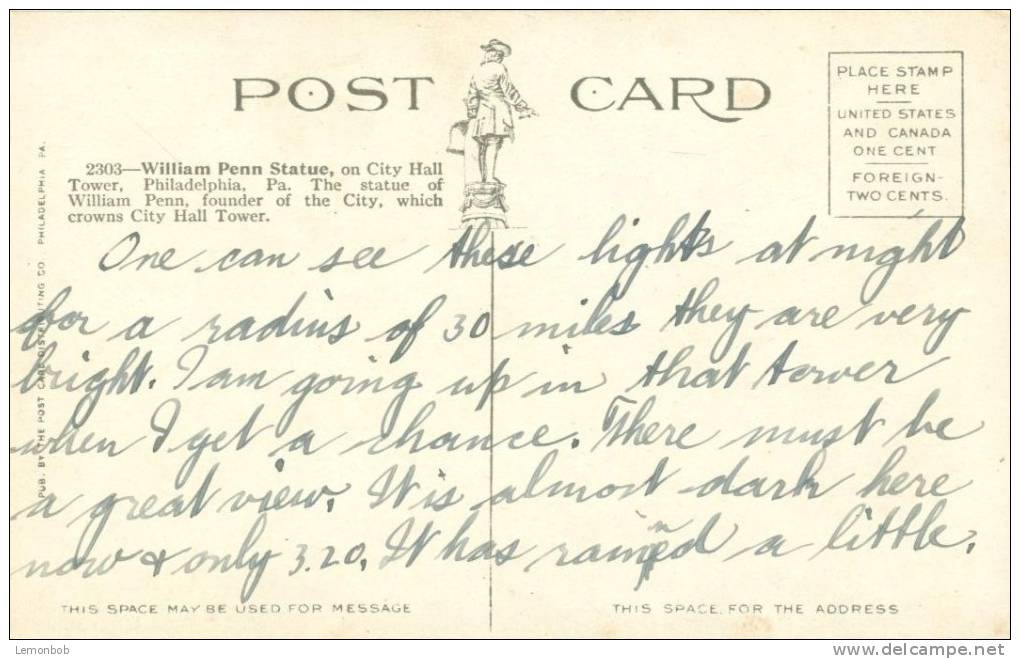 POST CARD
PLACE STAMP
HERE
UNITED STATES
AND CANADA
ONE CENT
FOREIGN-
TWO CENTS.
2303—William Penn Statue, on City Hall
Tower, Philadelphia, Pa. The statue of
William Penn, founder of the City, which
crowns City Hall Tower.
PUB. BY THE POST CARD DISTRIBUTING CO. PHILADELPHIA PA.
One can see these lights at night
for a radius of 30 miles they are very
bright. I am going up in that tower
when I get a chance. There must be
a great view. It is almost dark here
now & only 3.20. It has rained a little.
THIS SPACE MAY BE USED FOR MESSAGE
THIS SPACE FOR THE ADDRESS
Lemonbob
delcampe.net